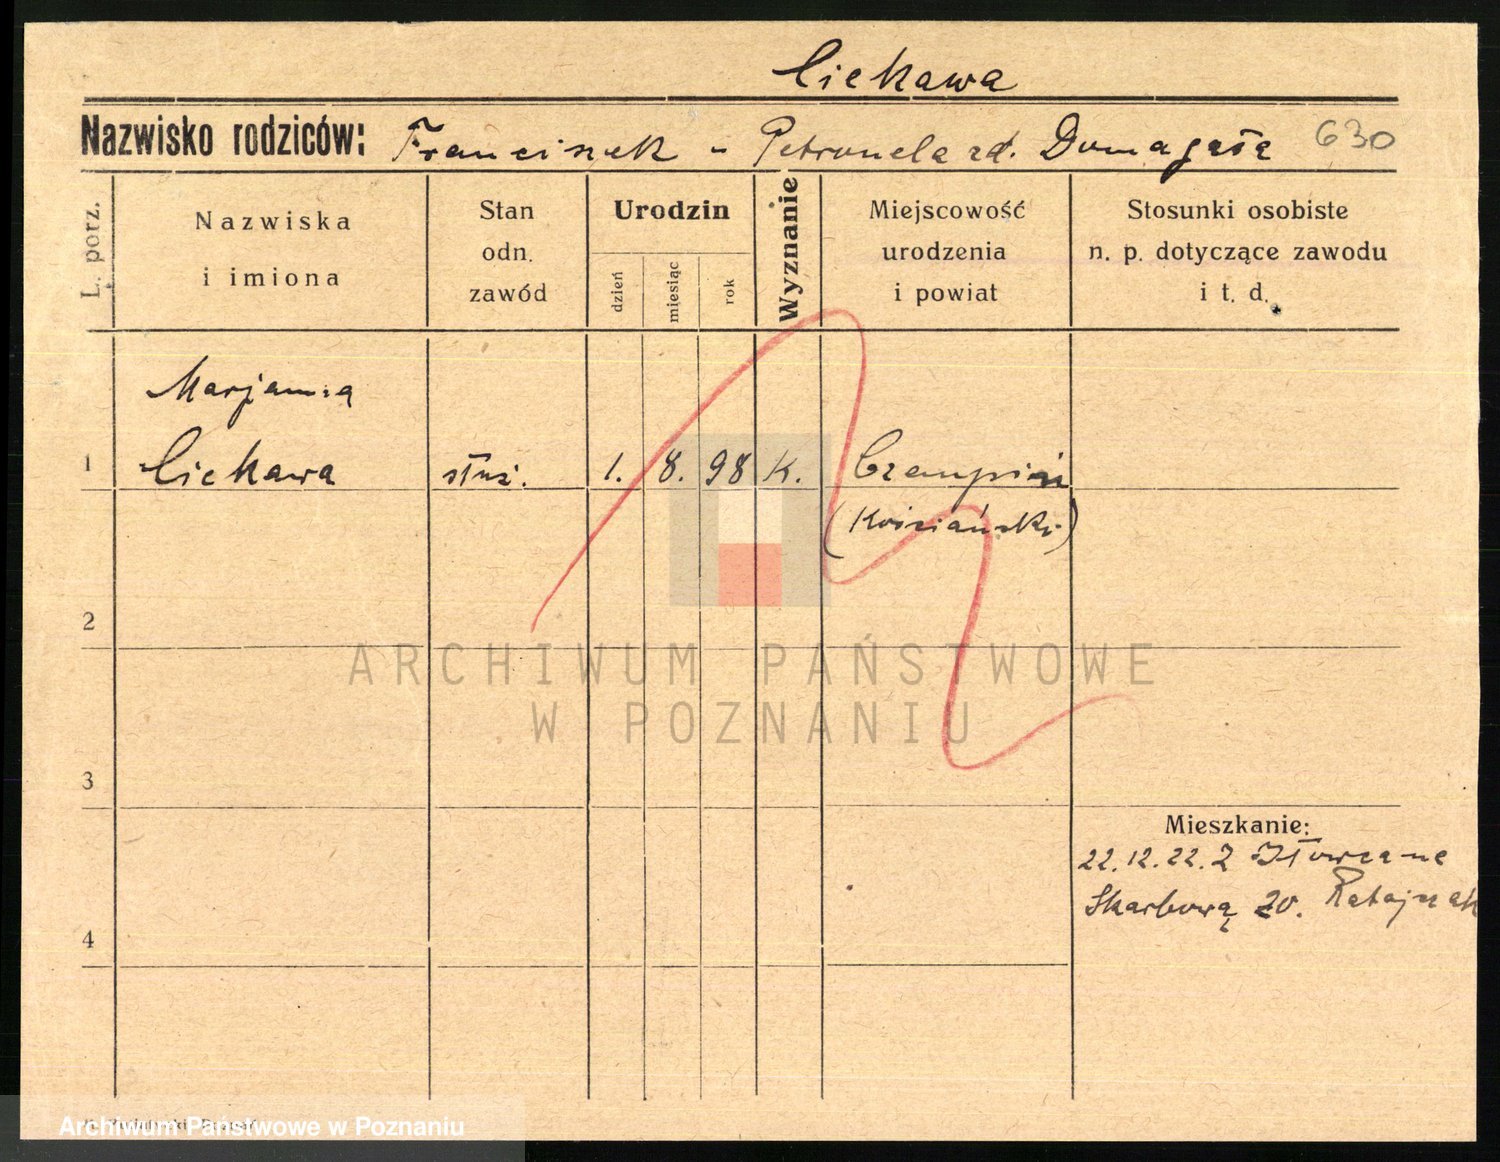 Ciekawa
Nazwisko rodziców: Franciszek - Petronela zd. Domagała 630
L. porz.
Nazwiska
i imiona
Stan
odn.
zawód
Urodzin
dzień
miesiąc
rok
Wyznanie
Miejscowość
urodzenia
i powiat
Stosunki osobiste
n. p. dotyczące zawodu
i t. d.
Marjanna
1 Ciekawa służ. 1. 8. 98 K. Czempiń
(Kościański)
2
3
4
Mieszkanie:
22.12.22. Z Iłowca ne
Skarbową 20. Ratajczak
ARCHIWUM PAŃSTWOWE
W POZNANIU
Archiwum Państwowe w Poznaniu